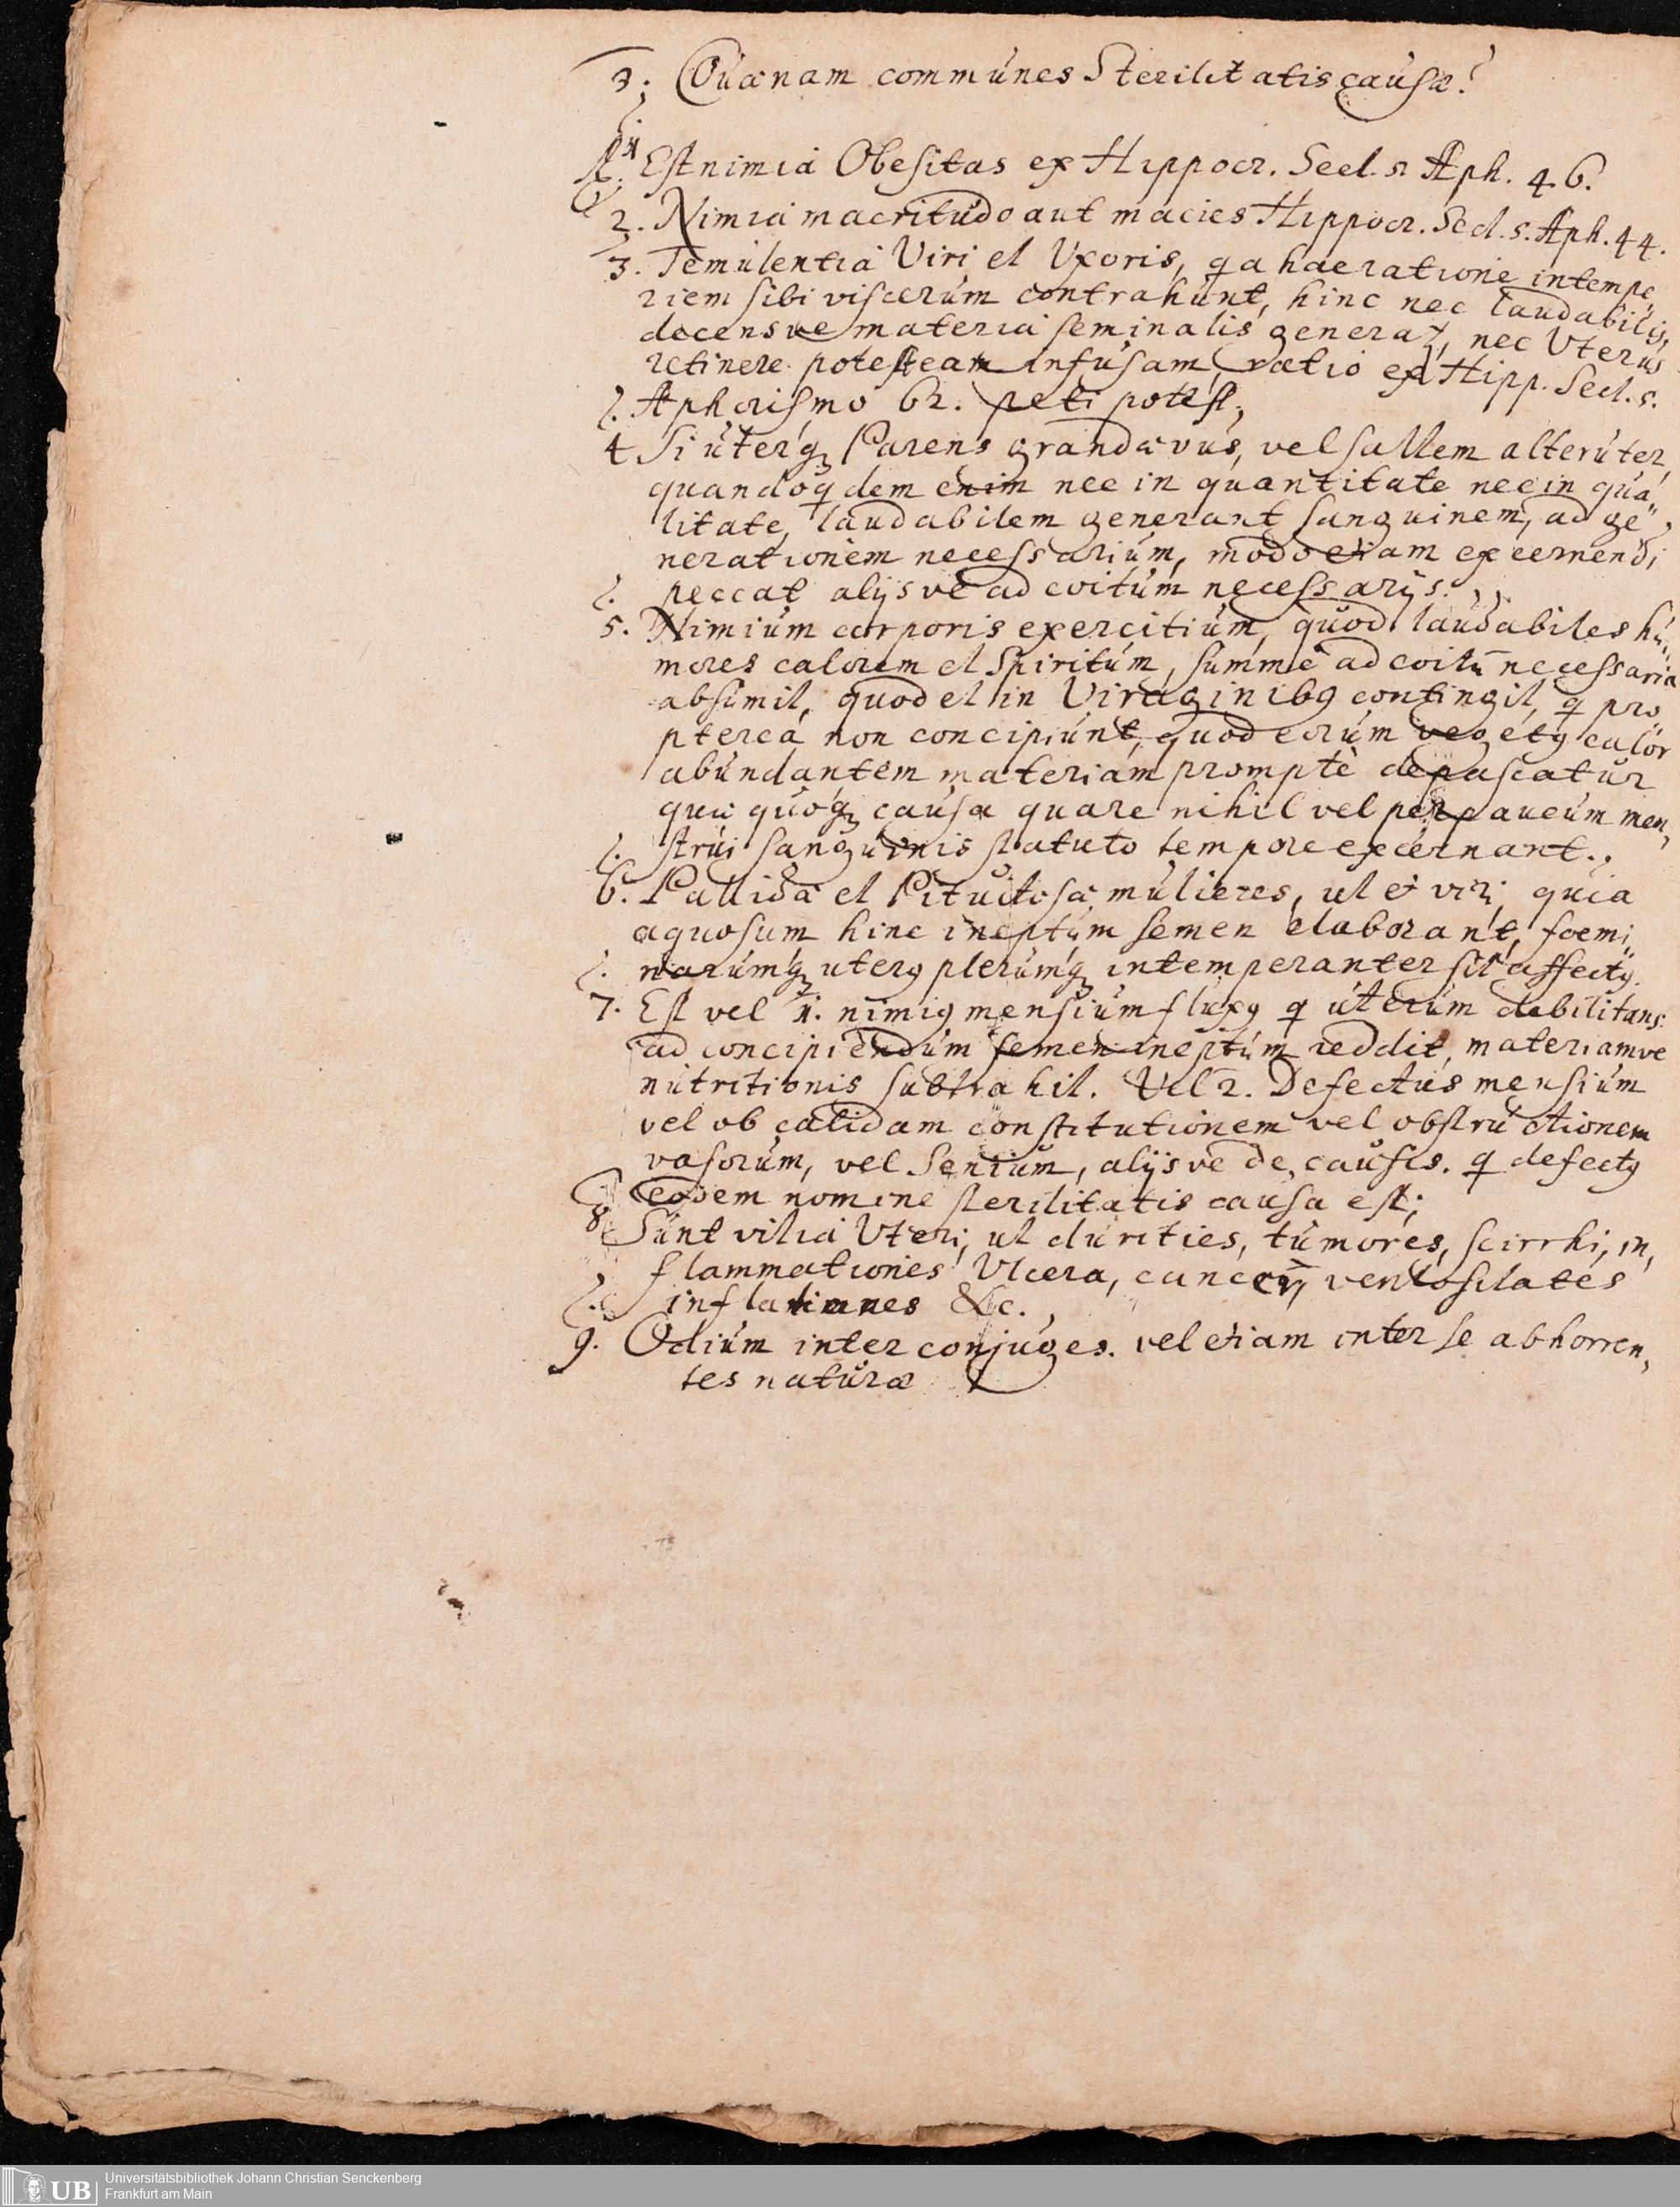 3. Quænam communes Sterilitatis causæ?
1. Est nimia Obesitas ex Hippocr. Sect. 5 Aph. 46.
2. Nimia macritudo aut macies Hippocr. Sect. 5. Aph. 44.
3. Temulentia Viri et Uxoris, qa hac ratione intempe,
riem sibi viscerum contrahunt, hinc nec laudabilis,
decensve materia seminalis generat, nec Uterus
retinere potest eam infusam, ratio ex Hipp. Sect. 5.
Aphorismo 62. peti potest;
4 Si uterq Parens grandævus, vel saltem alteruter,
quandoqdem enim nec in quantitate nec in qua„
litate, laudabilem generant sanguinem, ad ge„
nerationem necessarium, modo etiam excernendi
peccat alijsve ad coitum necessarijs.
5. Nimium corporis exercitium, quod laudabiles hu„
mores calorem et Spiritum, summe ad coitū necessaria
absumit, quod et in Viraginibg contingit, q pro
pterea non concipiunt, quod eorum vegetg calor
abundantem materiam promptè depascatur
quæ quoq causa quare nihil vel perpaucum men,
strui sanguinis statuto tempore excernant.
6. Pallidæ et Pituitosæ mulieres, ut et viri, quia
aquosum hinc ineptum semen elaborant, foemi„
narumq uterg plerumq intemperanter sit affectg.
7. Est vel 1. nimig mensium fluxg q uterum debilitans
ad concipiendum semen ineptum reddit, materiamve
nutritionis subtrahit. Vel 2. Defectus mensium
vel ob calidam constitutionem vel obstructionem
vasorum, vel Senium, alijsve de causis. q defectg
eodem nomine sterilitatis causa est;
8. Sunt vitia Uteri, ut durities, tumores, scirrhi, in,
flammationes Ulcera, cancri, ventositates
inflationes &c.
9. Odium inter conjuges. vel etiam inter se abhorren,
tes naturæ
UB Universitätsbibliothek Johann Christian Senckenberg
Frankfurt am Main